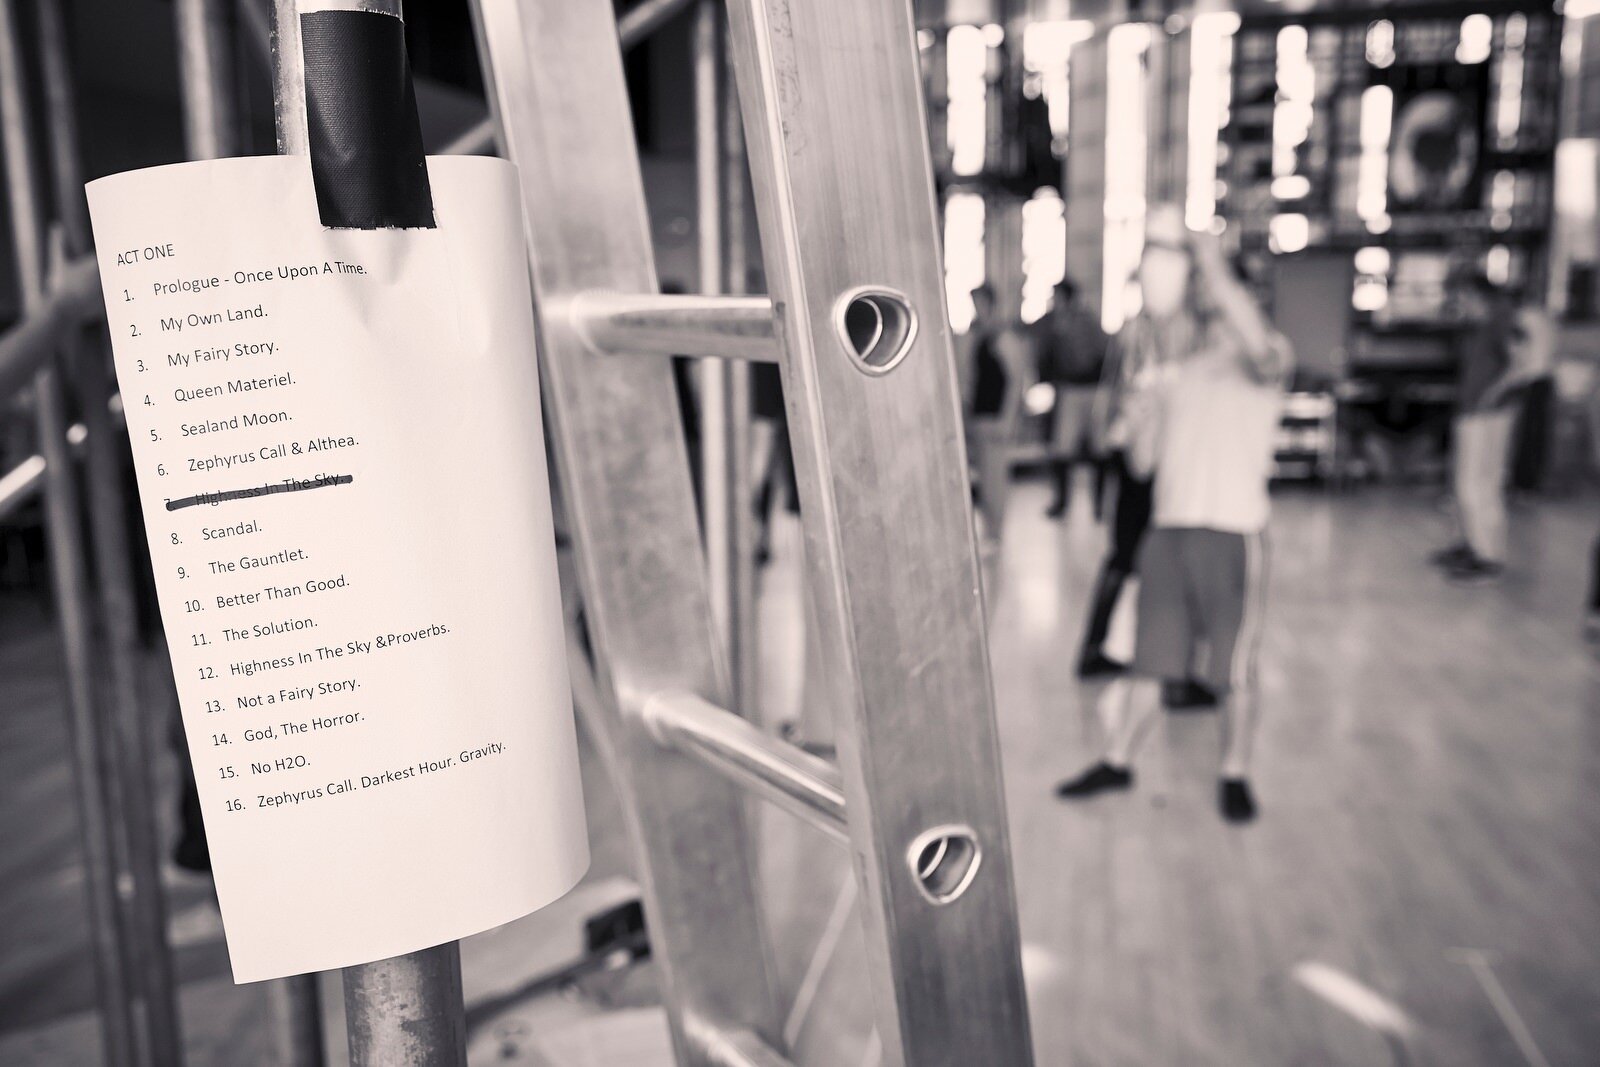 ACT ONE
1. Prologue - Once Upon A Time.
2. My Own Land.
3. My Fairy Story.
4. Queen Materiel.
5. Sealand Moon.
6. Zephyrus Call & Althea.
7. Highness In The Sky.
8. Scandal.
9. The Gauntlet.
10. Better Than Good.
11. The Solution.
12. Highness In The Sky &Proverbs.
13. Not a Fairy Story.
14. God, The Horror.
15. No H2O.
16. Zephyrus Call. Darkest Hour. Gravity.